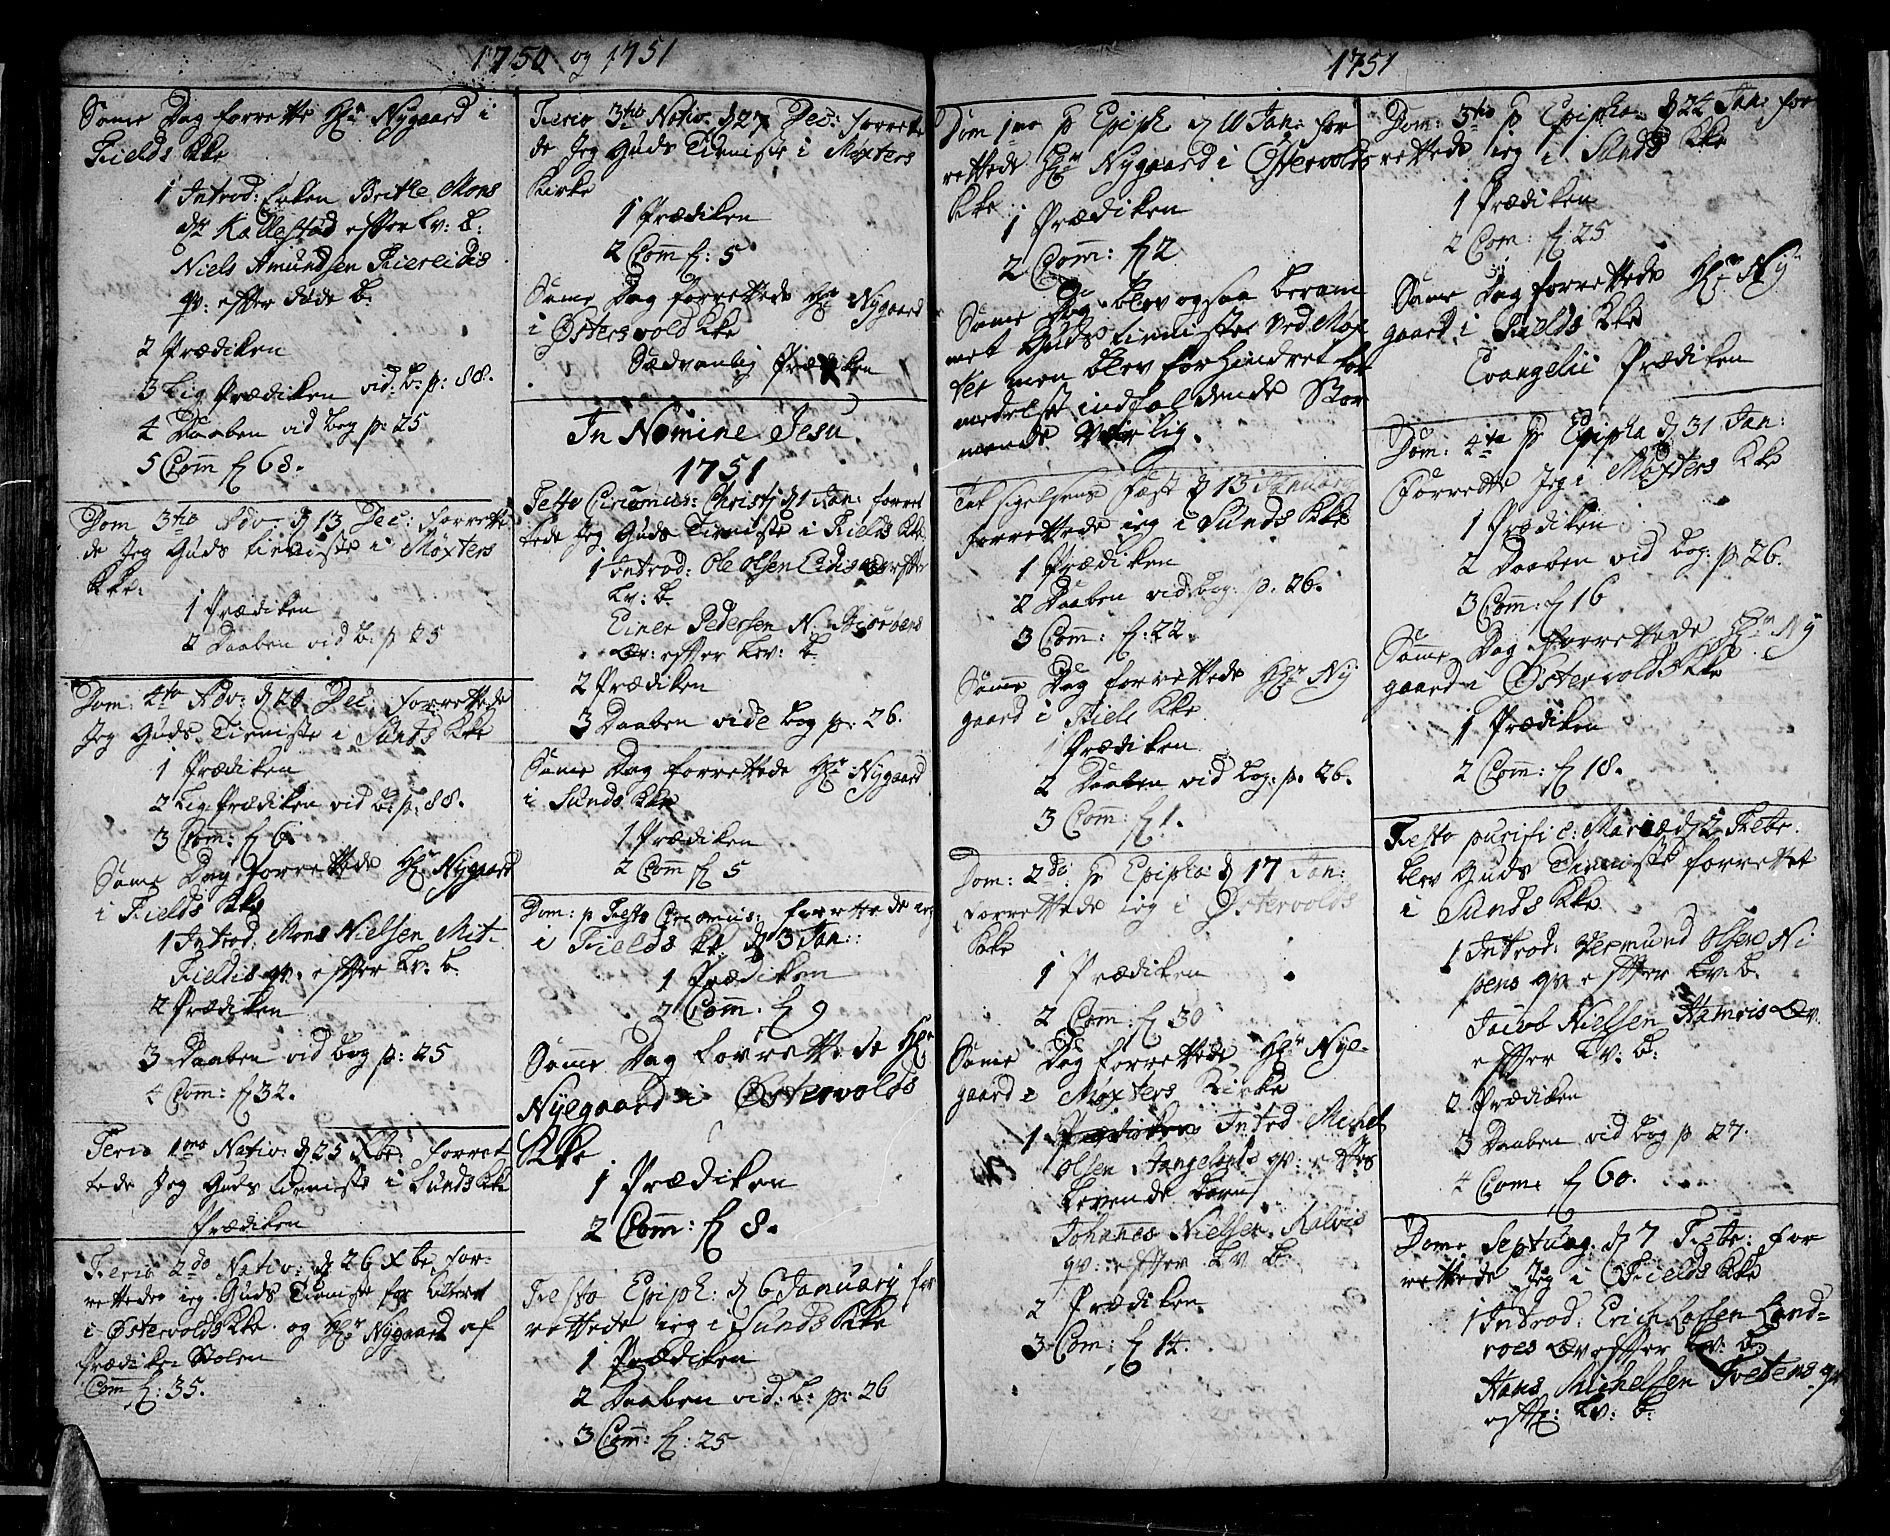 1750 og 1751
Same Dag forrette Hr Nygaard i
Fields Kke
1 Introd: Enken Britte Mons
dtr Kallestad effter Lv: B:
Niels Amundsen
qv: effter døde b:
2 Prædiken
3 Lig Prædiken vid: b: p: 88.
4 Daaben vid bog p: 25
5 Com̄ 68.
Dom 3tio Adv: d 13 Dec: forrette
de Jeg Guds Tieniste i Møxters
Kke:
1 Prædiken
2 Daaben vid b: p 25
Dom: 4to Adv: d 20 Dec: forrettede
Jeg Guds Tieniste i Sunds Kke
1 Prædiken
2 Lig Prædiken vid b: p: 88.
3 Com̄: 6
Same Dag forrettede Hr Nygaard
i Fields Kke
1 Introd: Mons Nielsen Mit-
Fieldis qv: effter Lv: b.
2 Prædiken
3 Daaben vid bog p: 25
4 Com̄: 32.
Feria 1ma Nativ: d 25 Xbr: forret-
tede Jeg Guds Tieniste i Sunds Kke
Prædiken
Feria 2da Nativ: d 26 Xbr: for-
rettede ieg Guds Tieniste for Alteret
i Østervolds Kke og Hr Nygaard af
Prædike Stolen
Com̄: 35.
Feria 3tia Nativ: d 27 Dec: forrette
de Jeg Guds Tieniste i Møxters
Kirke
1 Prædiken
2 Com̄: 5
Same Dag forrettede Hr Nygaard
i Østersvold Kke
Sædvanlig Prædiken
In Nomine Jesu
1751
Festo Circumcis: Christi d 1 Jan: forret
tede Jeg Guds Tieniste i Fields Kke
1 Introd: Ole Olsen effter
Lv: b.
Einer Pedersen N.
qv: effter Lev: b
2 Prædiken
3 Daaben vide bog p: 26.
Same Dag forrettede Hr Nygaard
i Sunds Kke
1 Prædiken
2 Com̄ 5
Dom: p Festo Circumcis: forrettede ieg
i Fields Kk d 3 Jan:
1 Prædiken
2 Com̄: 9
Samme Dag forrettede Hr
Nyegaard i Østervolds
Kke
1 Prædiken
2 Com̄: 8.
Festo Epiph: d 6 January for
rettede ieg i Sunds Kke
1 Prædiken
2 Daaben vid: b: p: 26
3 Com̄: 25
1751
Dom 1ma p Epiph d 10 Jan: for
rettede Hr Nygaard i Østervolds
Kke
1 Prædiken
2 Com̄: 2
Same Dag blev ogsaa beram
met Guds Tieniste ved Møx
ter men blev forhindret for
medelst indfaldende Stor
mende Veirlig.
Tak sigelsens Fæst d 13 January
forrettede ieg i Sunds Kke
1 Prædiken
2 Daaben vid: bog: p: 26.
3 Com̄: 22.
Same Dag forrettede Hr Ny
gaard i Fiels Kke
1 Prædiken
2 Daaben vid bog: p. 26.
3 Com̄: 1.
Dom: 2da p Epipha d 17 Jan:
forrettede ieg i Østervolds
Kke
1 Prædiken
2 Com̄: 30
Same Dag forrettede Hr Nye-
gaard i Møxters Kirke
1 Prædiken Introd Michel
Olsen qv: effter
Levende Barn
Johannes Nielsen Kalvis
qv: effter Lv b:
2 Prædiken
3 Com: 14.
Dom: 3tia p Epipha d 24 Jan: for
rettede ieg i Sunds Kke
1 Prædiken
2 Com: 25
Same Dag forrettede Hr Ny-
gaard i Fields Kke
Evangelii Prædiken
Dom: 4ta p Epipha d 31 Jan:
Forrette Jeg i Møxters Kke
1 Prædiken
2 Daaben vid bog: p 26.
3 Com̄: 16
Samme Dag forrettede Hr Ny
gaard i Østervolds Kke
1 Prædiken
2 Com̄: 18.
Festo purific: Mariæ d 2 Febr:
blev Guds Tieniste forrettet
i Sunds Kke
1 Introd: Hermund Olsen Ni
pens qv effter Lv: b.
Jacob Nielsen
effter Lv: b:
2 Prædiken
3 Daaben vid bog p 27.
4 Com: 60.
Dom: Septuag: d 7 Febr: for
rettede Jeg i Fields Kke
1 Introd: Erich Larsen Land-
roes qv effter Lv: b:
Hans Michelsen Tvetens qv
efft: Lv: b: